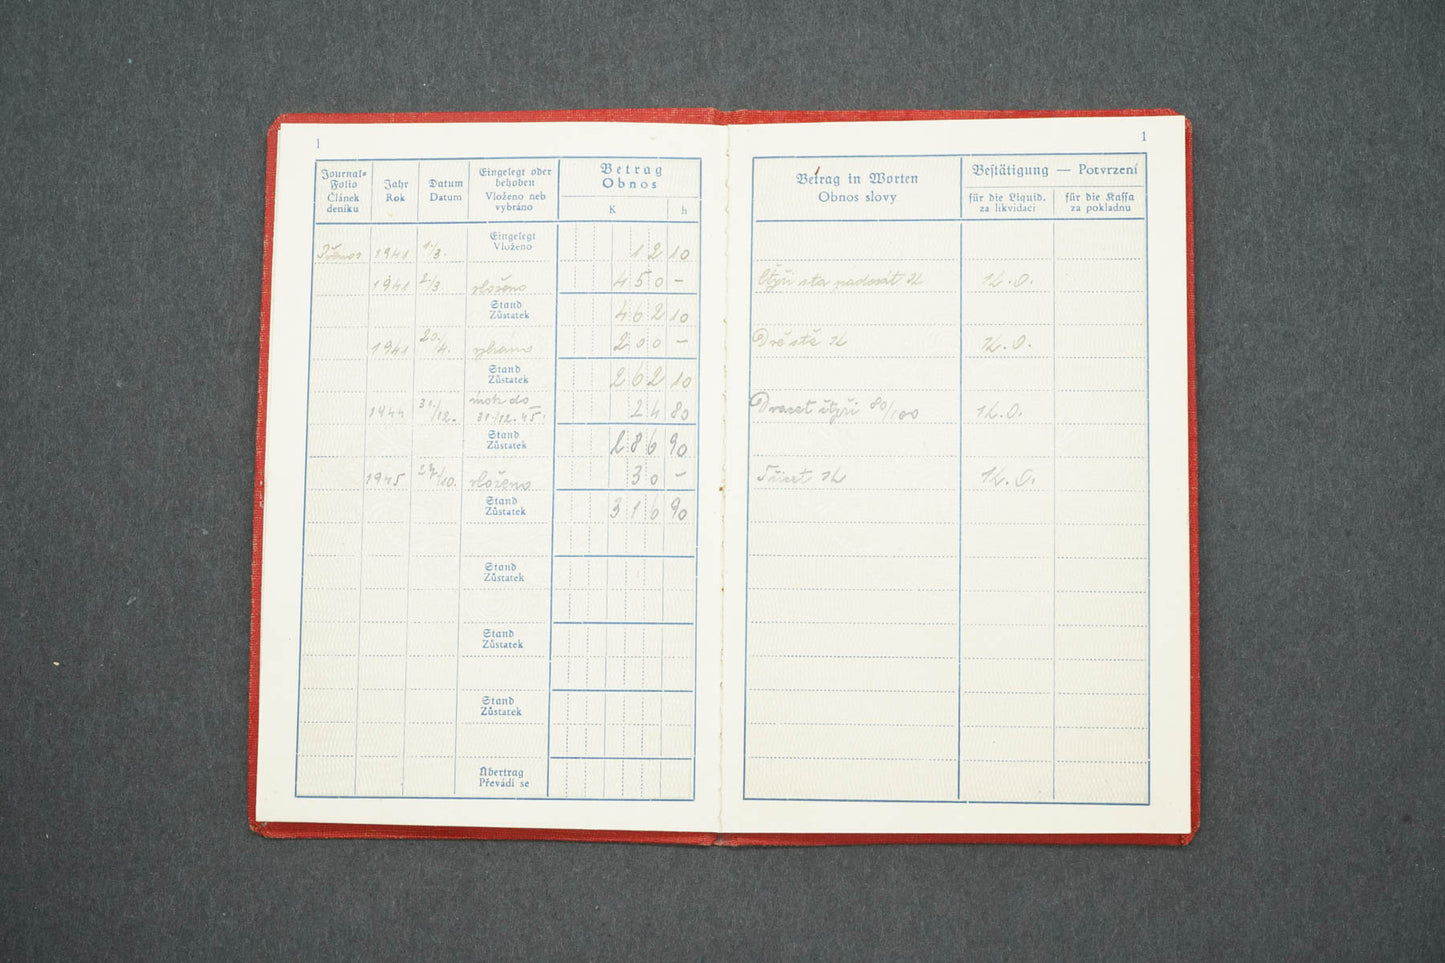 1
Journal-
Folio
Článek
deníku
Jahr
Rok
Datum
Datum
Eingelegt oder
behoben
Vloženo neb
vybráno
Betrag
Obnos
K h
Přenos 1941 1/3. Eingelegt
Vloženo 12 10
1941 2/3 vloženo 450 –
Stand
Zůstatek 462 10
1941 20./4. vybráno 200 –
Stand
Zůstatek 262 10
1944 31./12. úrok do
31./12. 45. 24 80
Stand
Zůstatek 286 90
1945 27/10. vloženo 30 –
Stand
Zůstatek 316 90
Stand
Zůstatek
Stand
Zůstatek
Stand
Zůstatek
Übertrag
Převádí se
1
Betrag in Worten
Obnos slovy
Bestätigung — Potvrzení
für die Liquid.
za likvidaci
für die Kassa
za pokladnu
Čtyři sta padesát K
Dvě stě K
Dvacet čtyři 80/100
Třicet K